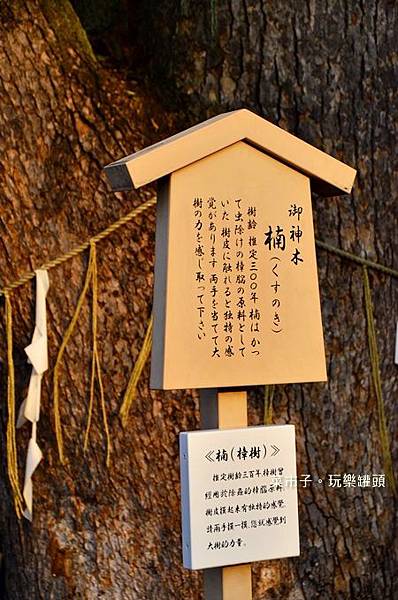 御神木
楠(くすのき)
樹齢 推定三〇〇年 楠はかつ
て虫除けの樟脳の原料として
いた 樹皮に触れると独特の感
覚があります 両手を当てて大
樹の力を感じ取って下さい
《楠(樟樹)》
推定樹齡三百年樟樹曾
經用於除蟲的樟腦原料,
樹皮摸起來有獨特的感覺,
請兩手摸一摸,您就感覺到
大樹的力量。
菜市子。玩樂罐頭